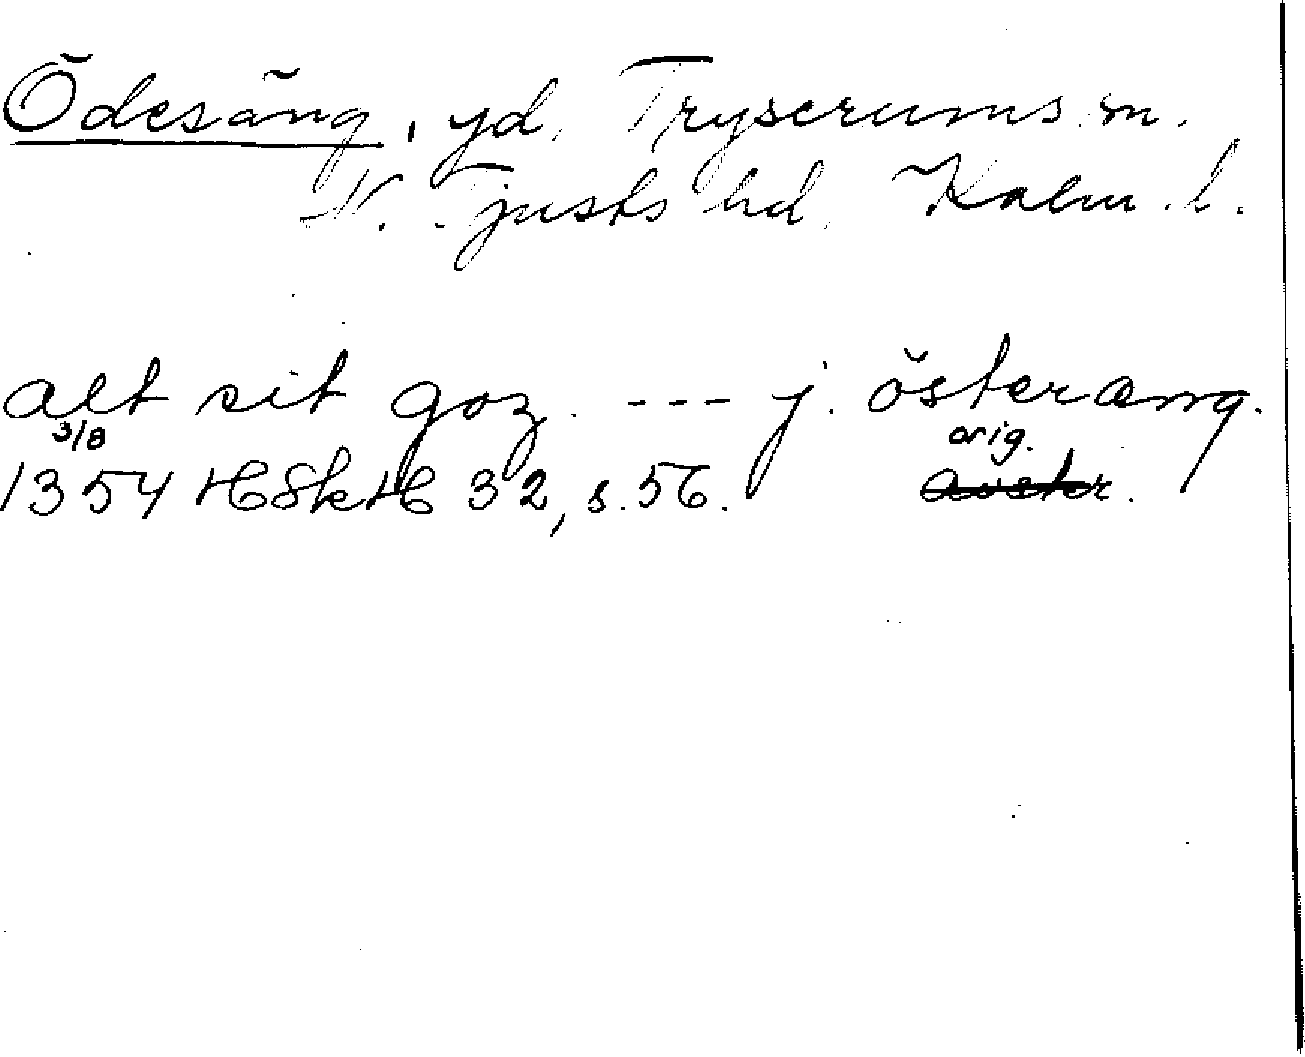 Ödesäng, yd, Tryserums sn.
N. Tjusts hd, Kalm. l.
alt sit goz --- j. österæng.
3/8 orig.
1354 HSkH 32, s. 56. avskr.